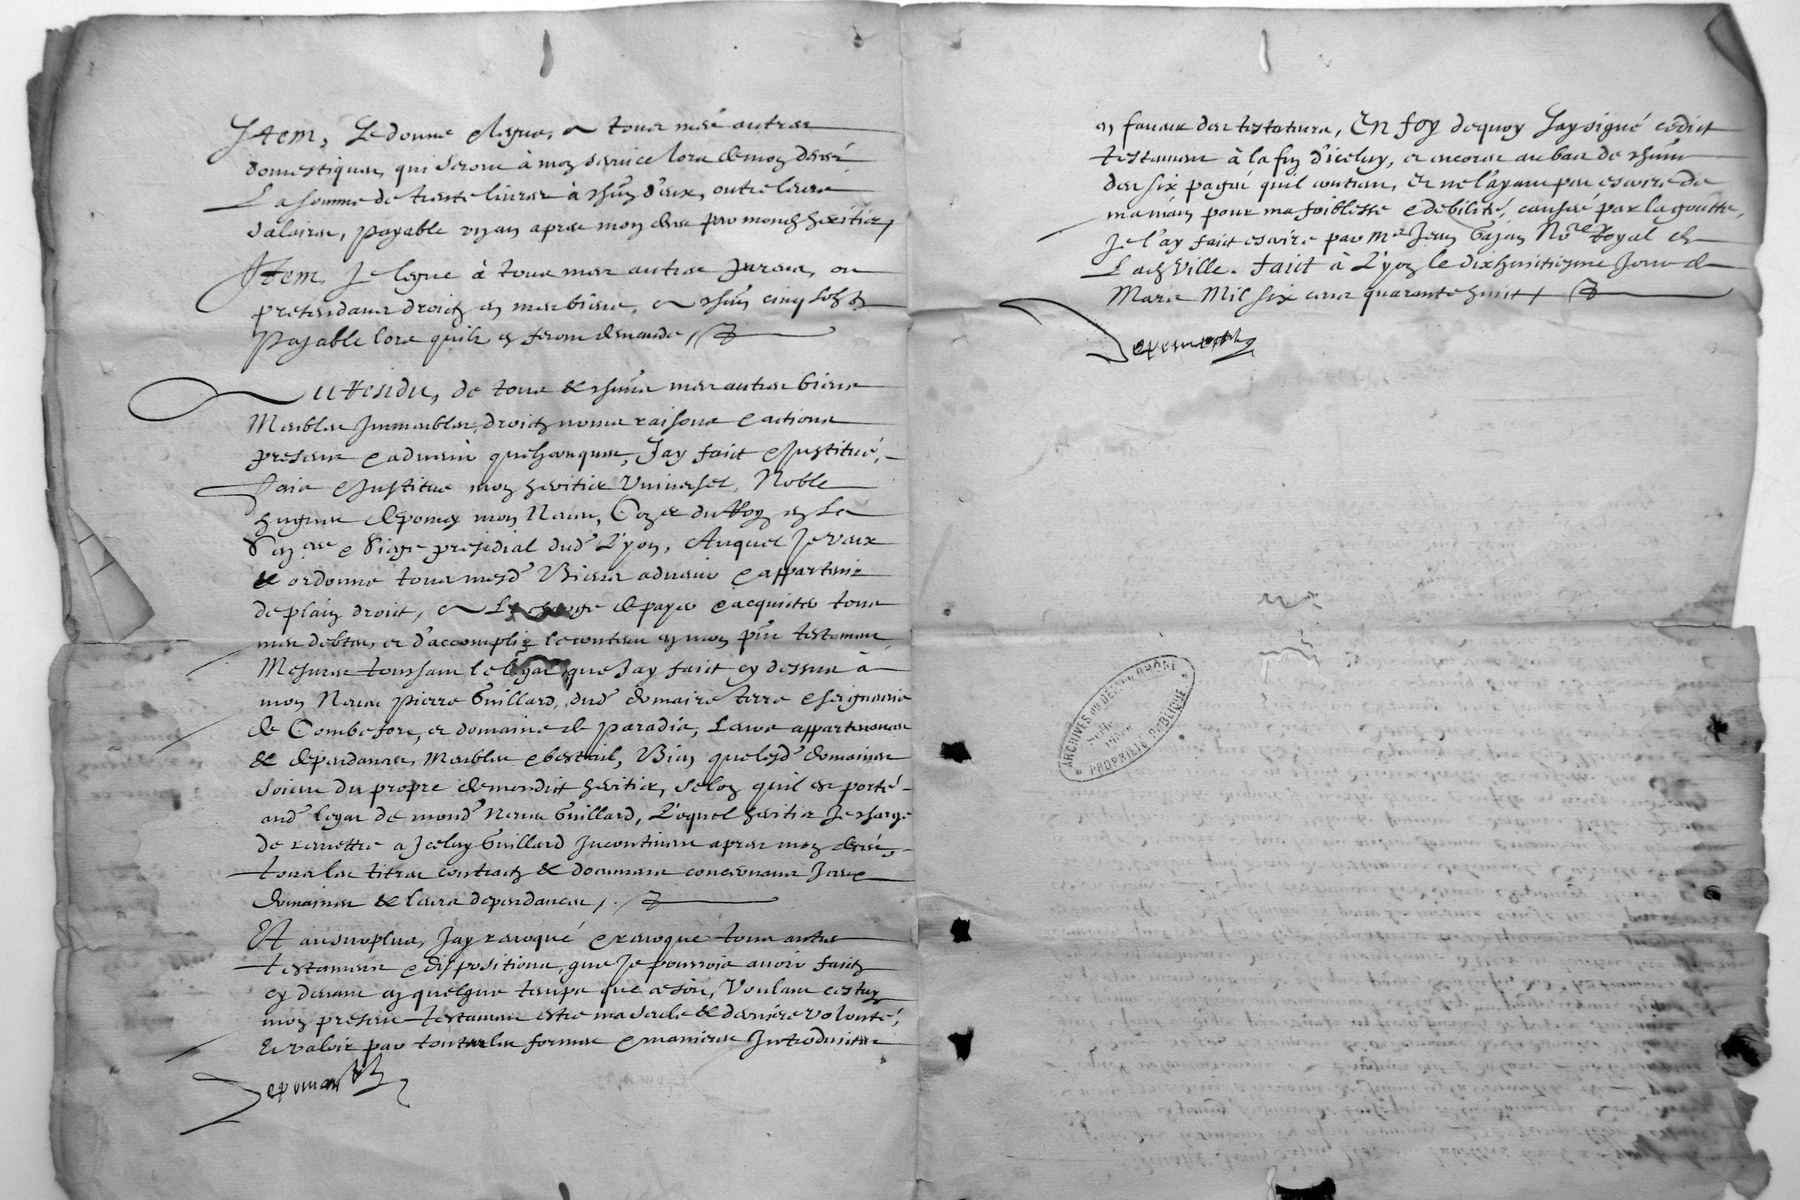 Item, Je donne & legue, a tous mes autres
domestiques, qui seront à mon service lors de mon deces,
La somme de trente livres à chũn d'eux, outre leurs
salaires, payable un an apres mon deces par mond heritier,
Item Je legue à tous mes autres parens, ou
pretendans droict en mes biens, a chũn cinq solz
Payable lors quilz en feront demande,
Au residu, de tous & chũns mes autres biens
Meubles Immeubles, droictz noms raisons & actions
presens & advenir quelconques, J'ay faict & Institué,
Fais & Institue mon heritier Universel, Noble
Hugues de pomey mon Neveu, Coner du Roy en La
& Siege presidial dud Lyon, Auquel Je veux
& ordonne tous mesd Biens advenir & appartenir
de plain droict, a La charge de payer & acquiter tous
mes debtes, et d'accomplir le contenu en mon pñt testament
Mesmes touchant le legat que J'ay faict cy dessus à
mon Neveu Pierre Guillard, dud domaine terre & seigneurie
de Combefort, et domaine de Paradis, Leurs appartenances
& dependances, Meubles & bestail, Bien que lesd domaines
soient du propre de mondict heritier, selon quil est porté
aud legat de mond Neveu Guillard, Lequel heritier Je charge
de remettre a Iceluy Guillard Incontinent apres mon deces,
tous les titres contractz & documens concernans Iceux
domaines & leurs dependances,
Et au surplus, J'ay revoqué & revoque tous autres
testamens & dispositions, que Je pourrois avoir faictz
cy devant en quelque temps que ce soit, Voulant cestuy
mon present testament estre ma seule & derniere volonté,
Et valoir par toutes les formes & manieres Introduites
Depomey
en faveur des testateurs, En foy dequoy J'ay signé cedict
testament à la fin d'iceluy, et encores au bas de chũne
des six pages quil contient, Et ne l'ayant peu escrire de
ma main pour ma foiblesse & debilité, causée par la goutte,
Je l'ay fait escrire par Me Jean Nore Royal de
Lad Ville. Faict à Lyon le dixhuictiesme Jour de
Mars Mil six cens quarante huict
Depomey
ARCHIVES DU DÉPt DU RHÔNE
PROPRIÉTÉ PUBLIQUE